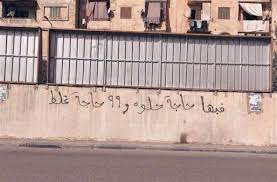 فيها حاجة حلوه و ٩٩ حاجة غلط